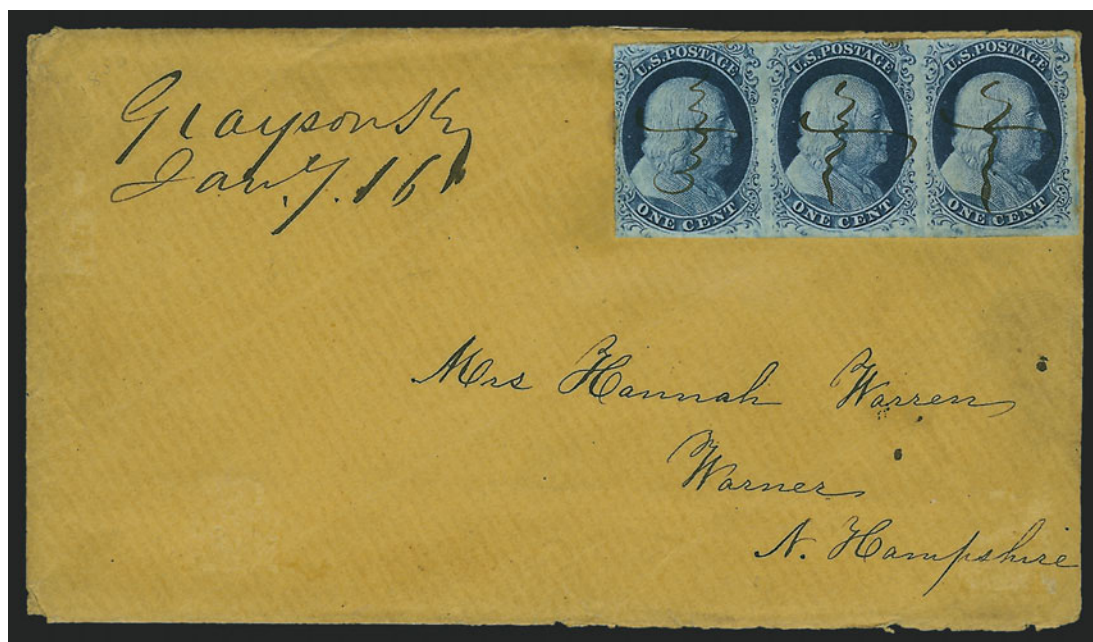 Grayson Ky
Jany. 16
U.S. POSTAGE U.S. POSTAGE U.S. POSTAGE
ONE CENT ONE CENT ONE CENT
Mrs Hannah Warren
Warner
N. Hampshire